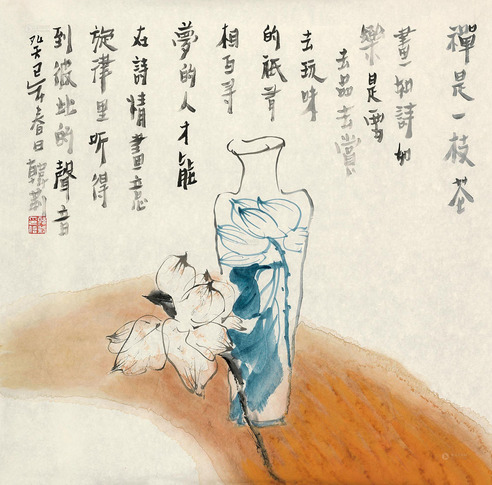 禪是一枝花
畫如詩如
樂是需
去品去賞
去玩味
的祇有
相互尋
夢的人才能
在詩情畫意
旋律里听得
到彼此的聲音
癸巳年春日韓